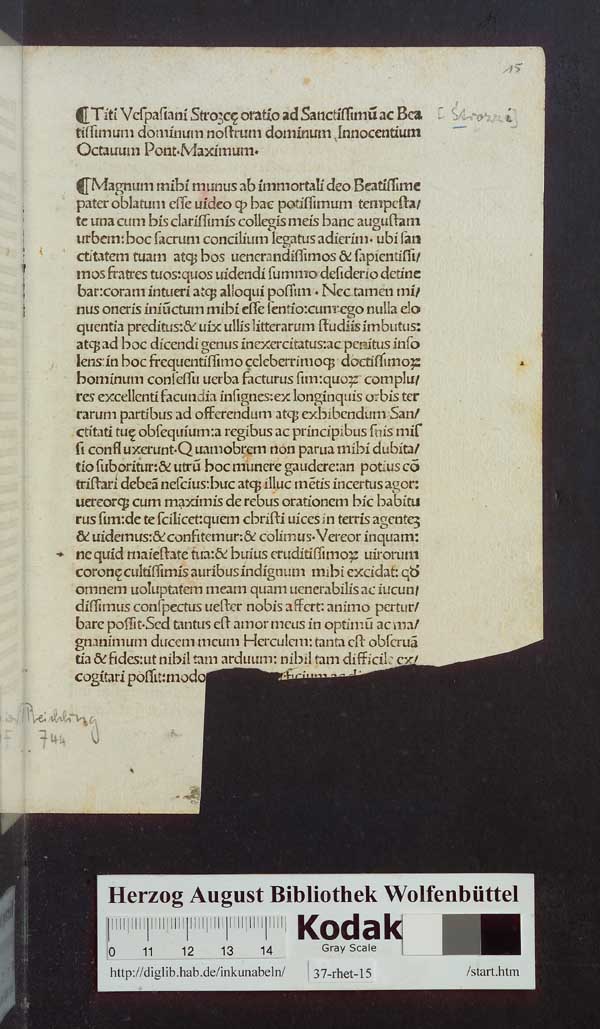 15
¶ Titi Vespasiani Strozcę oratio ad Sanctissimū ac Bea
[Strozzi]
tissimum dominum nostrum dominum Innocentium
Octauum Pont·Maximum·
¶ Magnum mihi munus ab immortali deo Beatissime
pater oblatum esse uideo ꝙ hac potissimum tempesta/
te una cum his clarissimis collegis meis hanc augustam
urbem: hoc sacrum concilium legatus adierim· ubi san
ctitatem tuam atqꝫ hos uenerandissimos & sapientissi/
mos fratres tuos: quos uidendi summo desiderio detine
bar: coram intueri atqꝫ alloqui possim· Nec tamen mi/
nus oneris iniūctum mihi esse sentio: cum ego nulla elo
quentia preditus: & uix ullis litterarum studiis imbutus:
atqꝫ ad hoc dicendi genus inexercitatus: ac penitus inso
lens: in hoc frequentissimo celeberrimoqꝫ doctissimoꝝ
hominum consessu uerba facturus sim: quoꝝ complu/
res excellenti facundia insignes: ex longinquis orbis ter
rarum partibus ad offerendum atqꝫ exhibendum San/
ctitati tuę obsequium: a regibus ac principibus suis mis
si confluxerunt· Quamobrem non parua mihi dubita/
tio suboritur: & utrū hoc munere gaudere: an potius cō
tristari debeā nescius: huc atqꝫ illuc mētis incertus agor:
uereorqꝫ cum maximis de rebus orationem hic habitu
rus sim: de te scilicet: quem christi uices in terris agenteꝫ
& uidemus: & confitemur: & colimus· Vereor inquam:
ne quid maiestate tua: & huius eruditissimoꝝ uirorum
coronę cultissimis auribus indignum mihi excidat: qđ
omnem uoluptatem meam quam uenerabilis ac iucun/
dissimus conspectus uester nobis affert: animo pertur/
bare possit· Sed tantus est amor meus in optimū ac ma/
gnanimum ducem meum Herculem: tanta est obseruā
tia & fides: ut nihil tam arduum: nihil tam difficile ex/
cogitari possit: modo
Reichling
744
Herzog August Bibliothek Wolfenbüttel
0 11 12 13 14
Kodak
Gray Scale
http://diglib.hab.de/inkunabeln/ 37-rhet-15 /start.htm